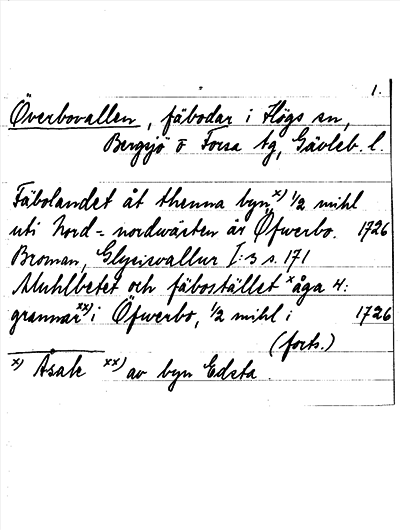 1.
Överbovallen, fäbodar i Högs sn,
Bergsjö o Forsa tg, Gävleb. l.
Fäbolandet åt thenna byn x) 1/2 mihl
uti Nord-nordwästen är Öfwerbo. 1726
Broman, Glysisvallur I:3 s. 171
Muhlbetet och fäbostället x åga 4:
grannar xx) i Öfwerbo, 1/2 mihl i 1726
(forts.)
x) Åsak xx) av byn Edsta